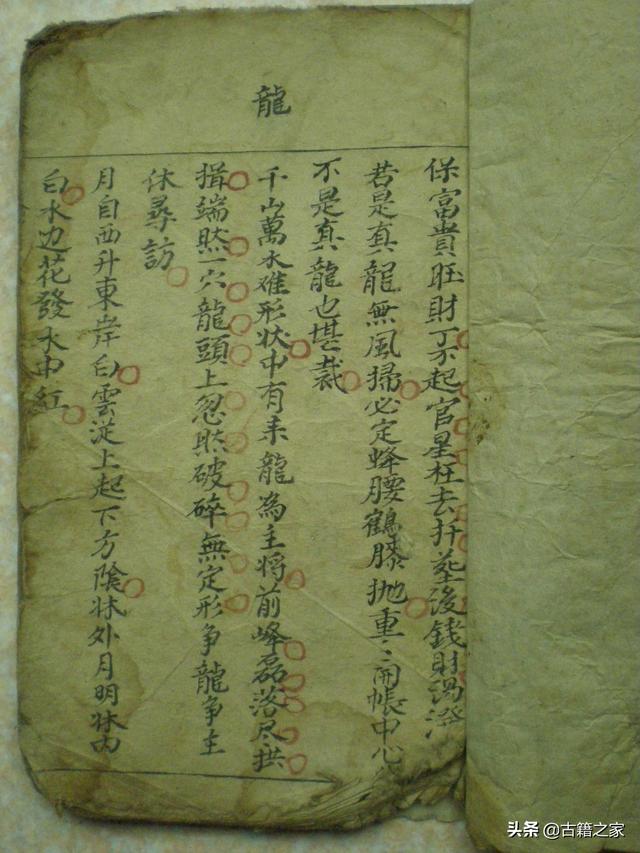 龍
保富貴旺財丁不起官星枉去扦塟後錢財湯潑
若是真龍無風掃必定蜂腰鶴膝抛重〻開帳中心
不是真龍也堪裁
千山萬水难形状中有来龍為主将前峰磊落尽拱
揖端然一穴龍頭上忽然破碎無定形争龍争主
休尋訪
月自西升東岸白雲従上起下方陰牀外月明牀内
白水边花發水中紅
头条 @古籍之家